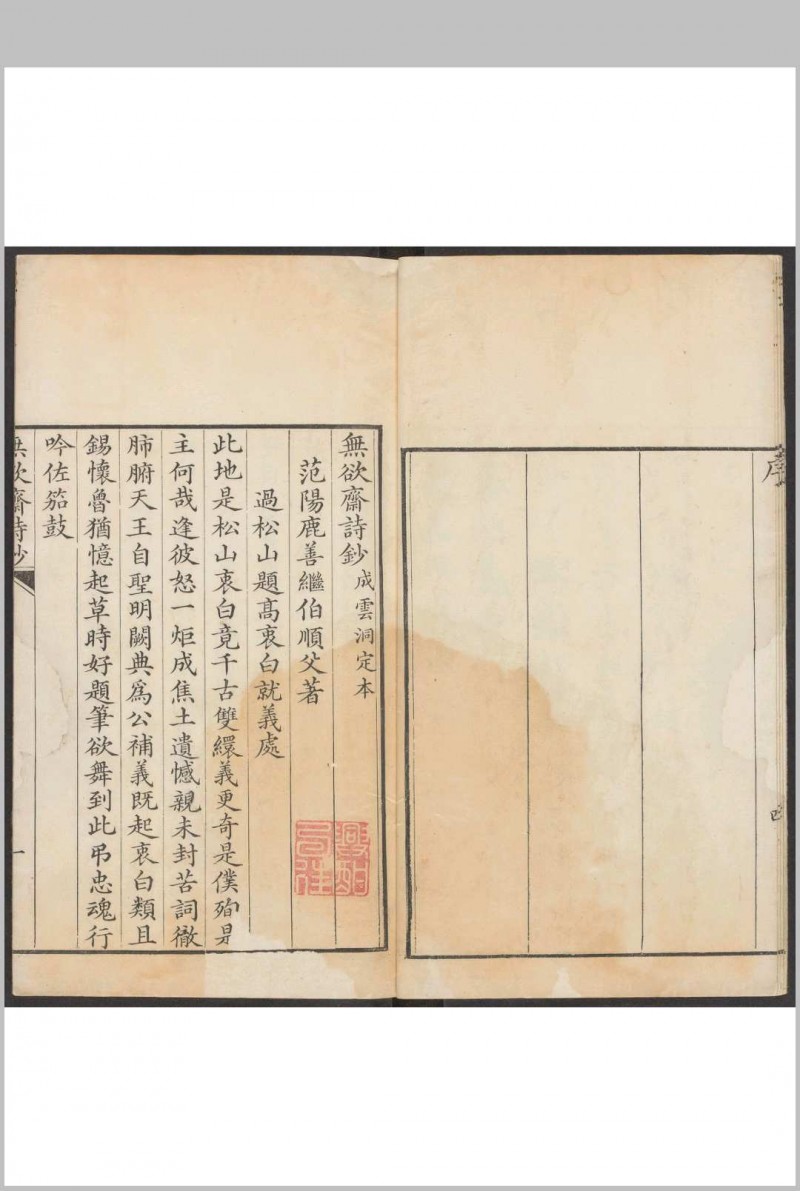 序
四
無欲齋詩鈔 成雲洞定本
范陽鹿善繼伯順父著
過松山題高衷白就義處
此地是松山衷白竟千古雙繯義更奇是僕殉是
主何哉逢彼怒一炬成焦土遺憾親未封苦詞徹
肺腑天王自聖明闕典爲公補義既起衷白類且
錫懷魯猶憶起草時好題筆欲舞到此弔忠魂行
吟佐笳鼓
無欲齋詩鈔
一